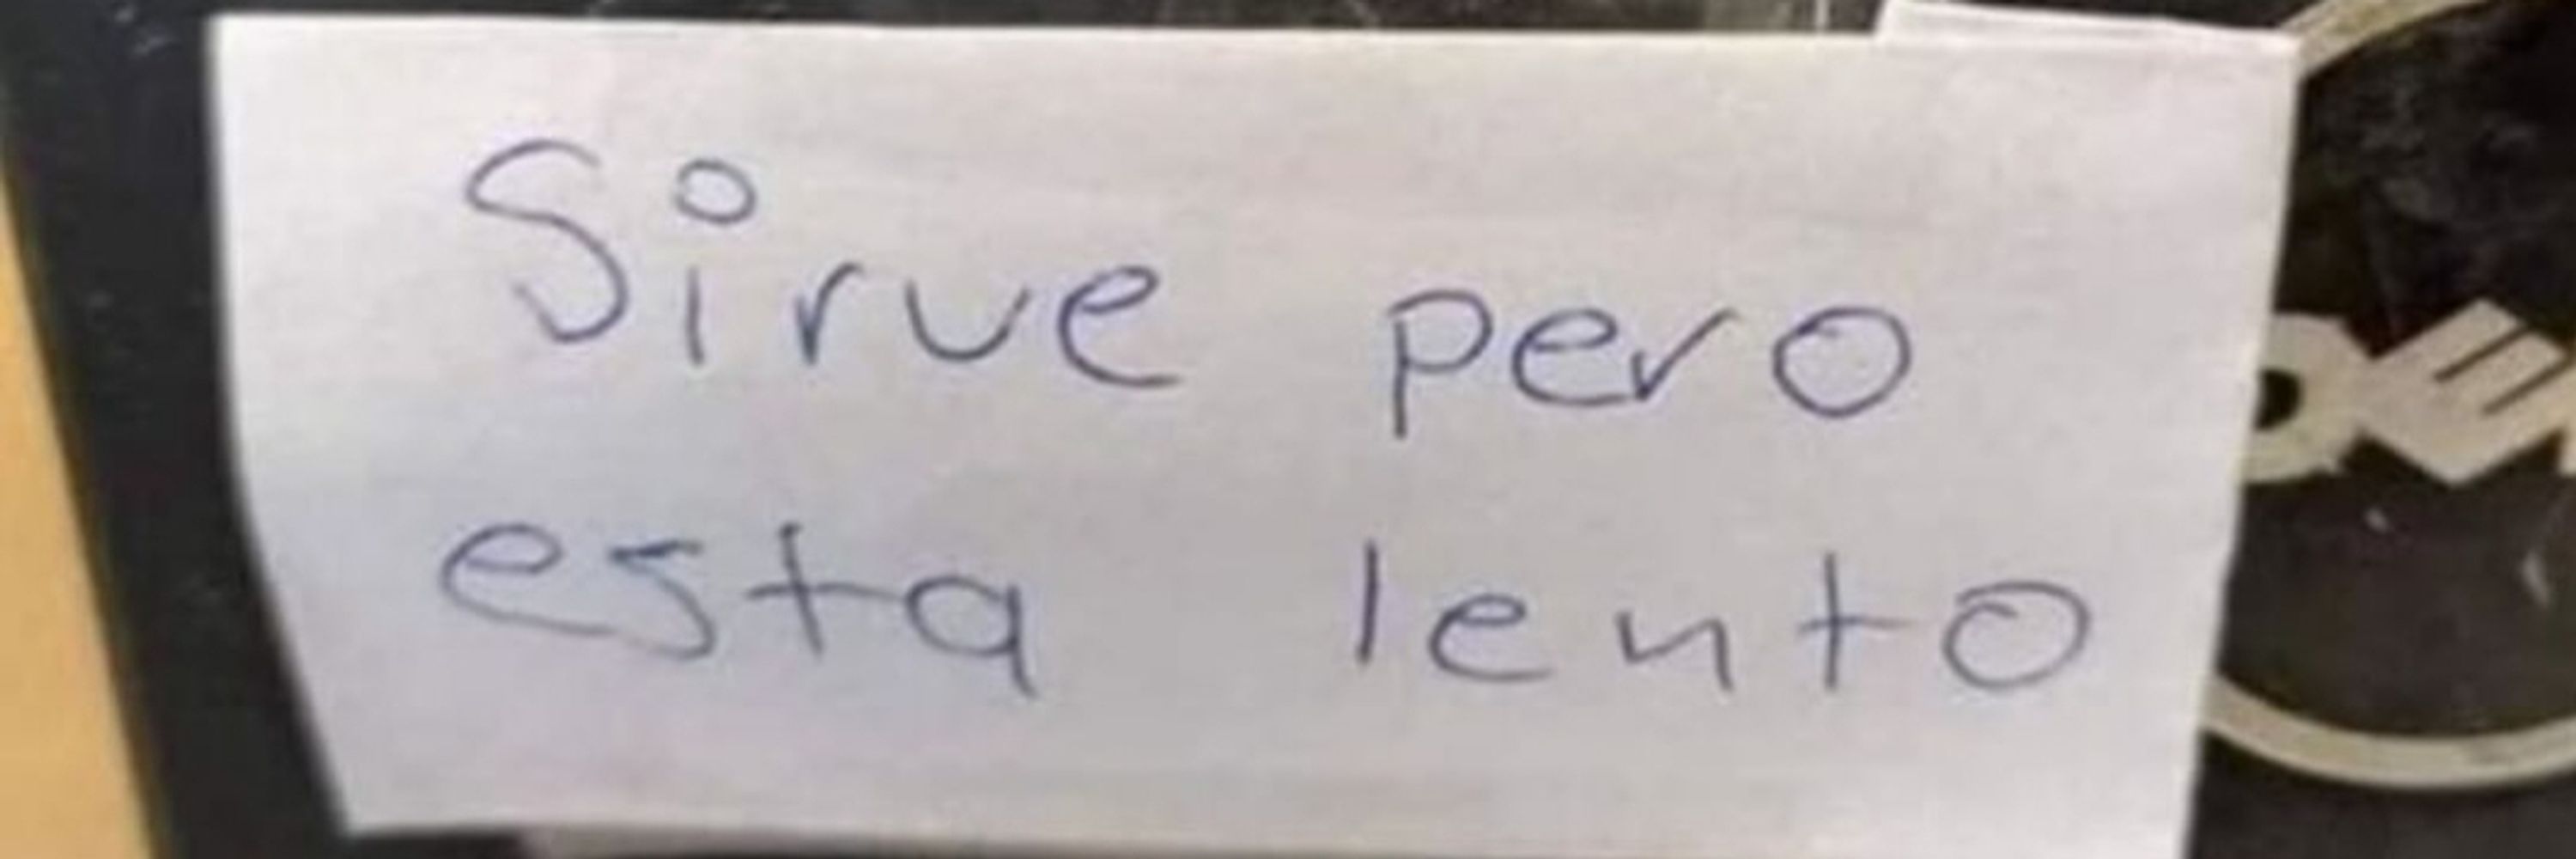 Sirve pero
esta lento
DE